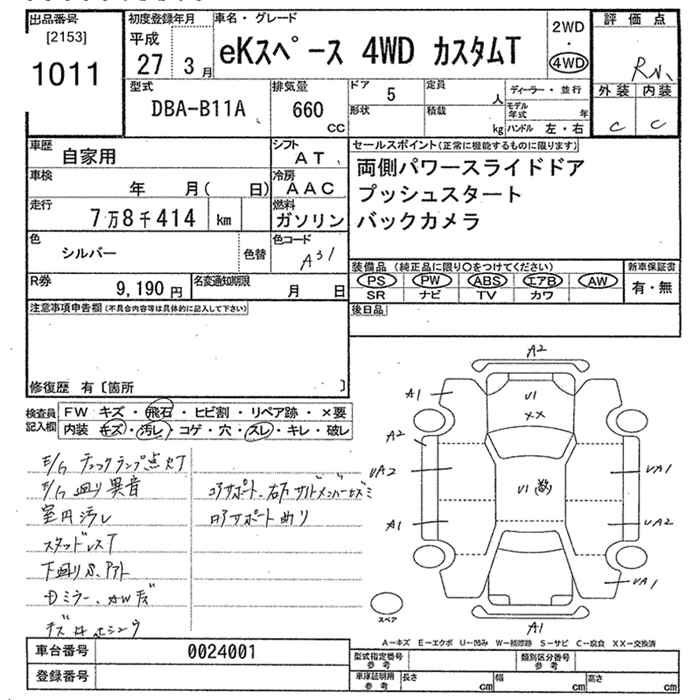 出品番号
[2153]
1011
初度登録年月
平成
27 3月
車名・グレード
eKスペース 4WD カスタムT
2WD
・
4WD
評価点
外装 内装
C C
型式
DBA-B11A
排気量
660
cc
ドア 5
形状
定員 人
積載 kg
ディーラー・並行
モデル年式 年
ハンドル 左・右
車歴 自家用
シフト AT
車検 年 月( 日)
冷房 AAC
走行 7万8千414 km
燃料 ガソリン
色 シルバー
色替
色コード A31
R券 9,190円
名変通知期限 月 日
セールスポイント(正常に機能するものに限ります)
両側パワースライドドア
プッシュスタート
バックカメラ
装備品(純正品に限り○をつけてください)
PS PW ABS エアB AW
SR ナビ TV カワ
新車保証書
有・無
後日品
注意事項申告欄(不具合内容等は具体的に記入して下さい)
修復歴 有〔箇所 〕
検査員記入欄
FW キズ・飛石・ヒビ割・リペア跡・×要
内装 キズ・汚レ・コゲ・穴・スレ・キレ・破レ
E/G チェックランプ点灯
E/G 廻り異音
室内汚レ
スタッドレスT
コアサポート、右
コアサポート曲リ
A2
A1
U1
XX
A2
UA2
UA1
U1
A1
UA2
UA1
A1
スペア
A-キズ E-エクボ U-凹み W-補修跡 S-サビ C-腐食 XX-交換済
車台番号 0024001
登録番号
型式指定番号 参考
類別区分番号 参考
車庫証明用 参考
長さ cm
幅 cm
高さ cm